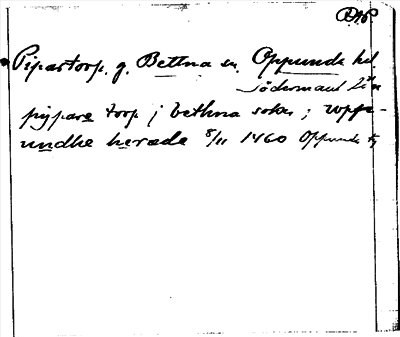 RAP
Pipartorp. g. Bettna sn. Oppunda hd
Södermanl. län
pypare torp j bethna sokn ; wppe-
undhe herade 8/11 1460 Oppunda